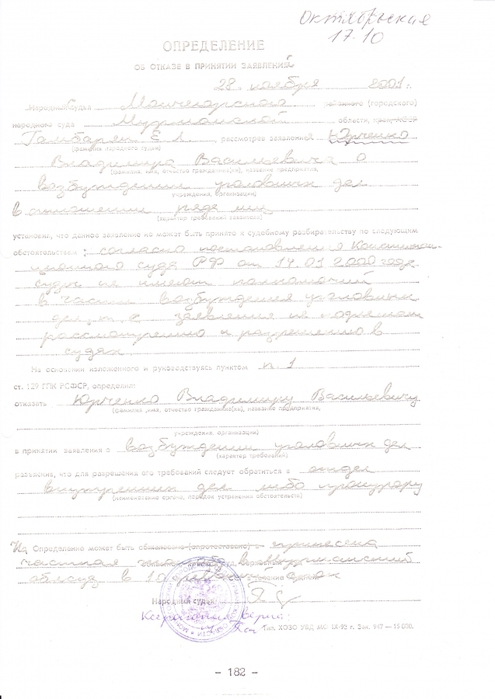 Октябрьская
17.10
ОПРЕДЕЛЕНИЕ
ОБ ОТКАЗЕ В ПРИНЯТИИ ЗАЯВЛЕНИЙ
28 ноября 2001 г.
Народный судья Мончегорского (городского)
народного суда Мурманской области,
Гамбарян Е. А., рассмотрев заявления Юрченко
(фамилия народного судьи)
Владимира Васильевича о
(фамилия, имя, отчество гражданина(ки), название предприятия,
возбуждении уголовных дел
учреждения, организации)
в отношении ряда лиц
установил, что данное заявление не может быть принято к судебному разбирательству по следующим
обстоятельствам: согласно постановления Конституц-
ционного суда РФ от 14.01.2000 года
суды не имеют полномочий
в части возбуждения уголовных
дел, и заявления не подлежат
рассмотрению и разрешению в
судах
На основании изложенного и руководствуясь пунктом п 1
ст. 129 ГПК РСФСР, определил:
отказать Юрченко Владимиру Васильевичу
(фамилия, имя, отчество гражданина(ки), название предприятия,
учреждения, организации)
в принятии заявления о возбуждении уголовных дел
(характер требований)
разъяснив, что для разрешения его требований следует обратиться в отдел
внутренних дел либо прокурору
(наименование органа, порядок устранения обстоятельств)
На Определение может быть принесена
частная жалоба в Мурманский
облсуд в 10
Народный судья
Копия верна:
- 182 -